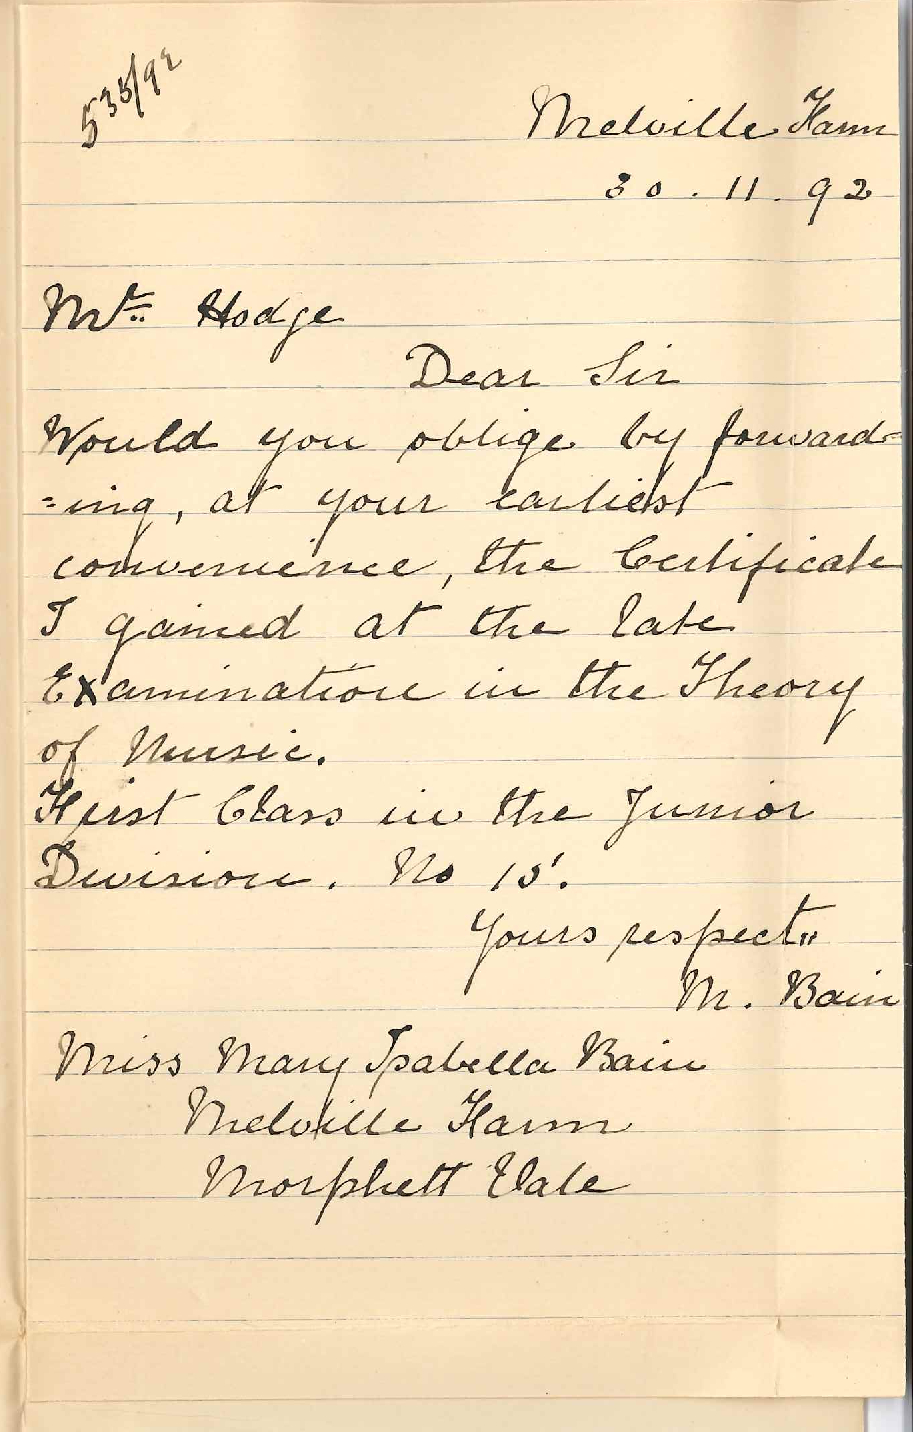 535/92
Melville Farm
30.11.92
Mr. Hodge
Dear Sir
Would you oblige by forward=
=ing, at your earliest
convenience, the Certificate
I gained at the late
Examination in the Theory
of Music.
First Class in the Junior
Division. No 15.
Yours respect.,,
M. Bain
Miss Mary Isabella Bain
Melville Farm
Morphett Vale